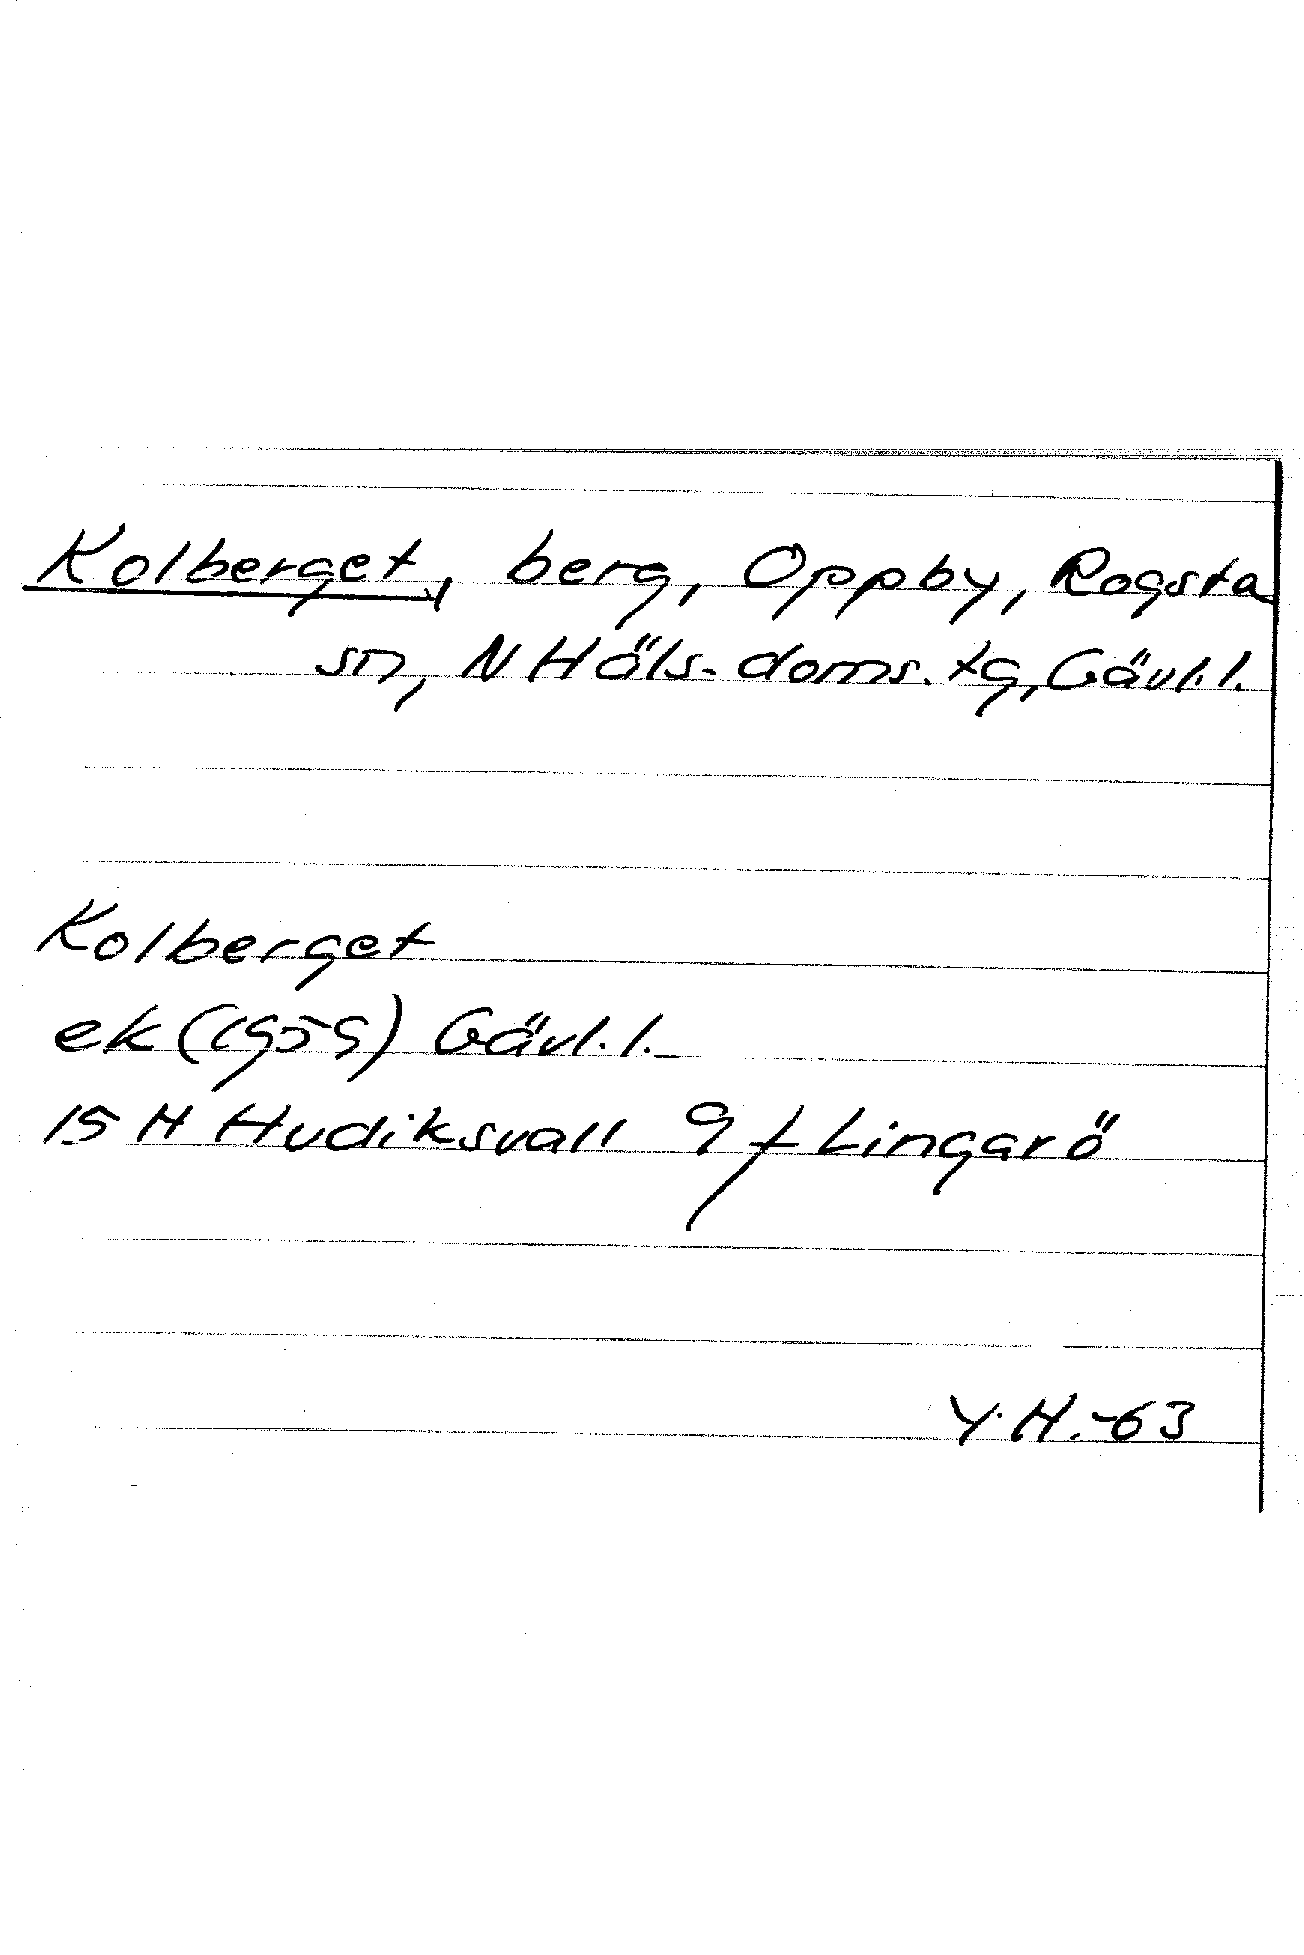 Kolberget, berg, Oppby, Rogsta
sn, N Häls. doms. tg, Gävl. l.
Kolberget
ek (1959) Gävl. l.
15 H Hudiksvall 9 f Lingarö
Y.H.-63